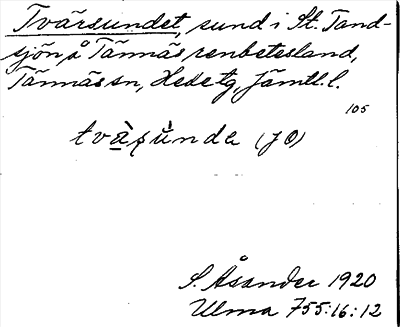 Tvärsundet, sund i St. Tand-
sjön å Tännäs renbetesland,
Tännäs sn, Hede tg, Jämtl. l.
105
tvàṣùnda (JO)
S. Åsander 1920
Ulma 755:16:12